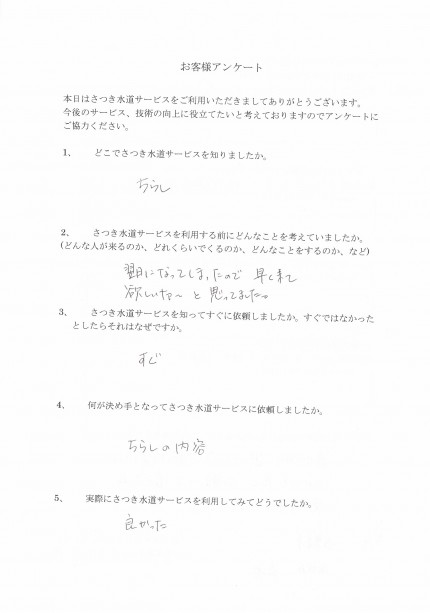 お客様アンケート
本日はさつき水道サービスをご利用いただきましてありがとうございます。
今後のサービス、技術の向上に役立てたいと考えておりますのでアンケートに
ご協力ください。
1、 どこでさつき水道サービスを知りましたか。
ちらし
2、 さつき水道サービスを利用する前にどんなことを考えていましたか。
(どんな人が来るのか、どれくらいでくるのか、どんなことをするのか、など)
翌日になってしまったので 早く来て
欲しいな〜 と 思ってました。
3、 さつき水道サービスを知ってすぐに依頼しましたか。すぐではなかった
としたらそれはなぜですか。
すぐ
4、 何が決め手となってさつき水道サービスに依頼しましたか。
ちらしの内容
5、 実際にさつき水道サービスを利用してみてどうでしたか。
良かった